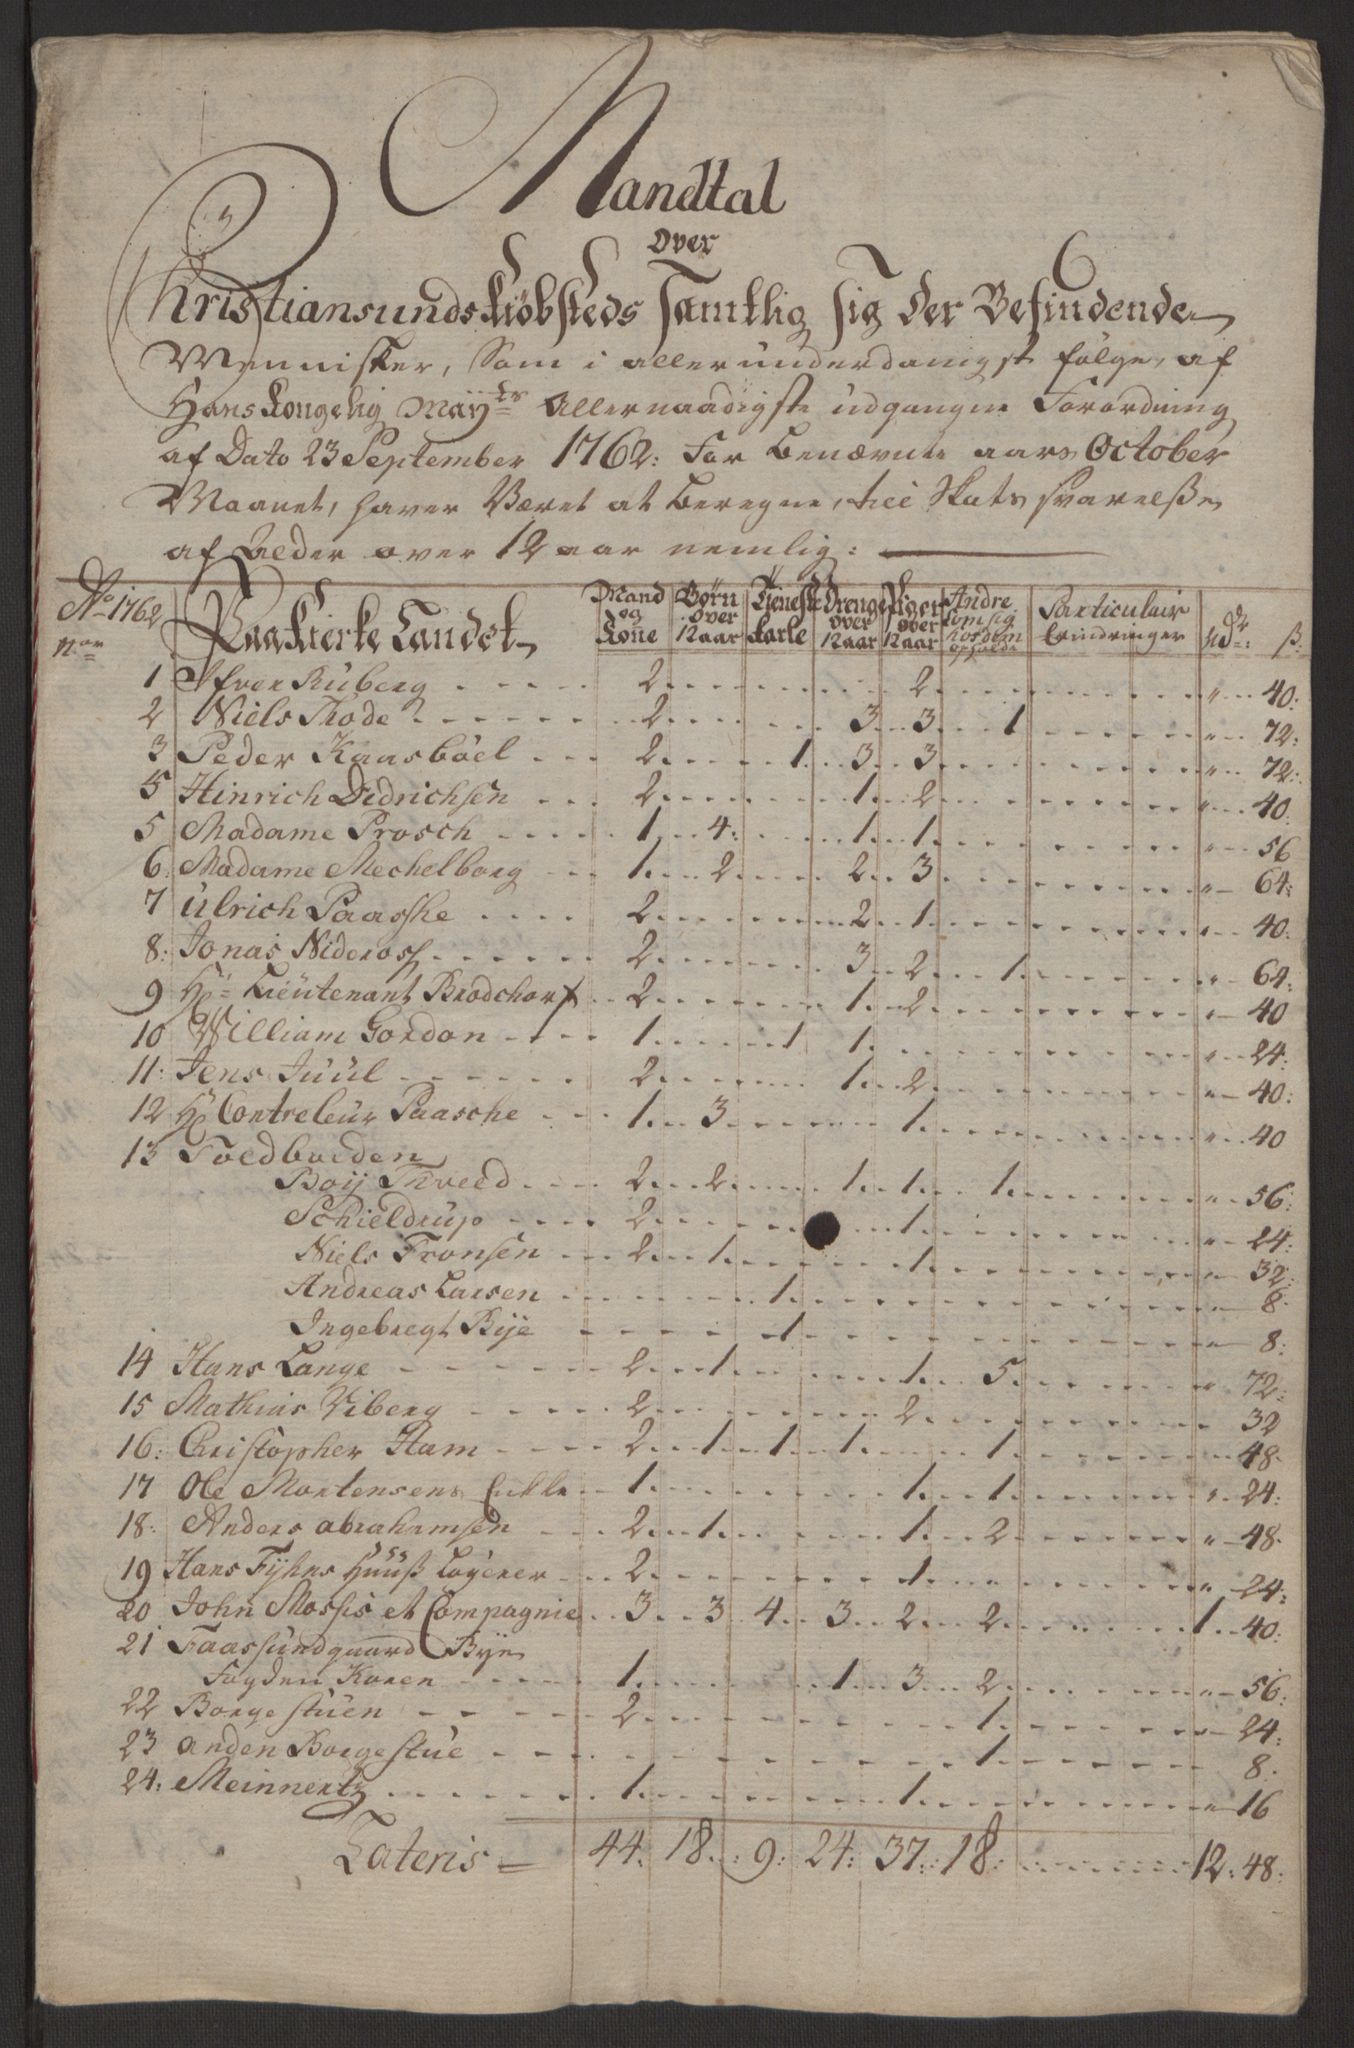 Mandtal
Over
Christiansunds Kiøbsteds Samtlig sig der Befindende
Mennisker, Som i allerunderdanigst følge, af
Hans Kongelig May:ts Allernaadigste udgangne Forordning
af Dato 23 September 1762: For benævnte aars October
Maanet, haver Været at beregne, till Skats svarelße
af Alder over 12 aar nemlig:
Ao 1762 Paa Kirke Landet Mand og Kone Børn over 12 aar Tieneste Karle Drenge over 12 aar Piger over 12 aar Andre som sig hos dem opholde Particulair Erindringer Rdr: ß:
No
1 Ifver Ruberg 2 2 " 40:
2 Niels Thode 2 3 3 1 " 72:
3 Peder Kaasbøel 2 1 3 3 " 72:
5 Hinrich Didrichsen 2 1 2 " 40.
5 Madame Prosch 1 4: 1 1 " 56
6: Madame Mechelborg 1 2 2 3 " 64:
7 Ulrich Paasske 2 2 1 " 40:
8: Jonas Nideros 2 3 2 1 " 64:
9 Hr Lieutenant Brodchorf 2 1 2 " 40
10 William Gordon 1 1 1 " 24:
11: Jens Juul 2 1 2 " 40:
12 Hr Contreleur Paasche 1 3 1 " 40
13 Toldboeden
Boij Tveed 2 2 1 1 1 " 56:
Schieldrup 2 1 " 24:
Niels Fronsen 2 1 1 " 32:
Andreas Larsen 1 " 8.
Ingebregt Bye 1 " 8:
14 Hans Lange 2 1 1 5 " 72:
15 Mathias Viberg 2 2 32
16: Christopher Ham 2 1 1 1 1 " 48.
17 Ole Mortensens Enkke 1 1 1 " 24:
18: Anders abrahamsen 2 1 1 2 " 48.
19 Hans Fyhns Huuß Løyerer 2 1 " 24:
20 John Mosses et Compagnie 3 3 4 3 2 2 1 40:
21 Faassundgaard Bye
Fogden Koren 1 1 3 2 " 56:
22 Borgestuen 2 1 " 24:
23 anden Borgestue 1 8.
24: Meinnertz 1 1 " 16
Lateris 44: 18. 9: 24: 37: 18: 12: 48: